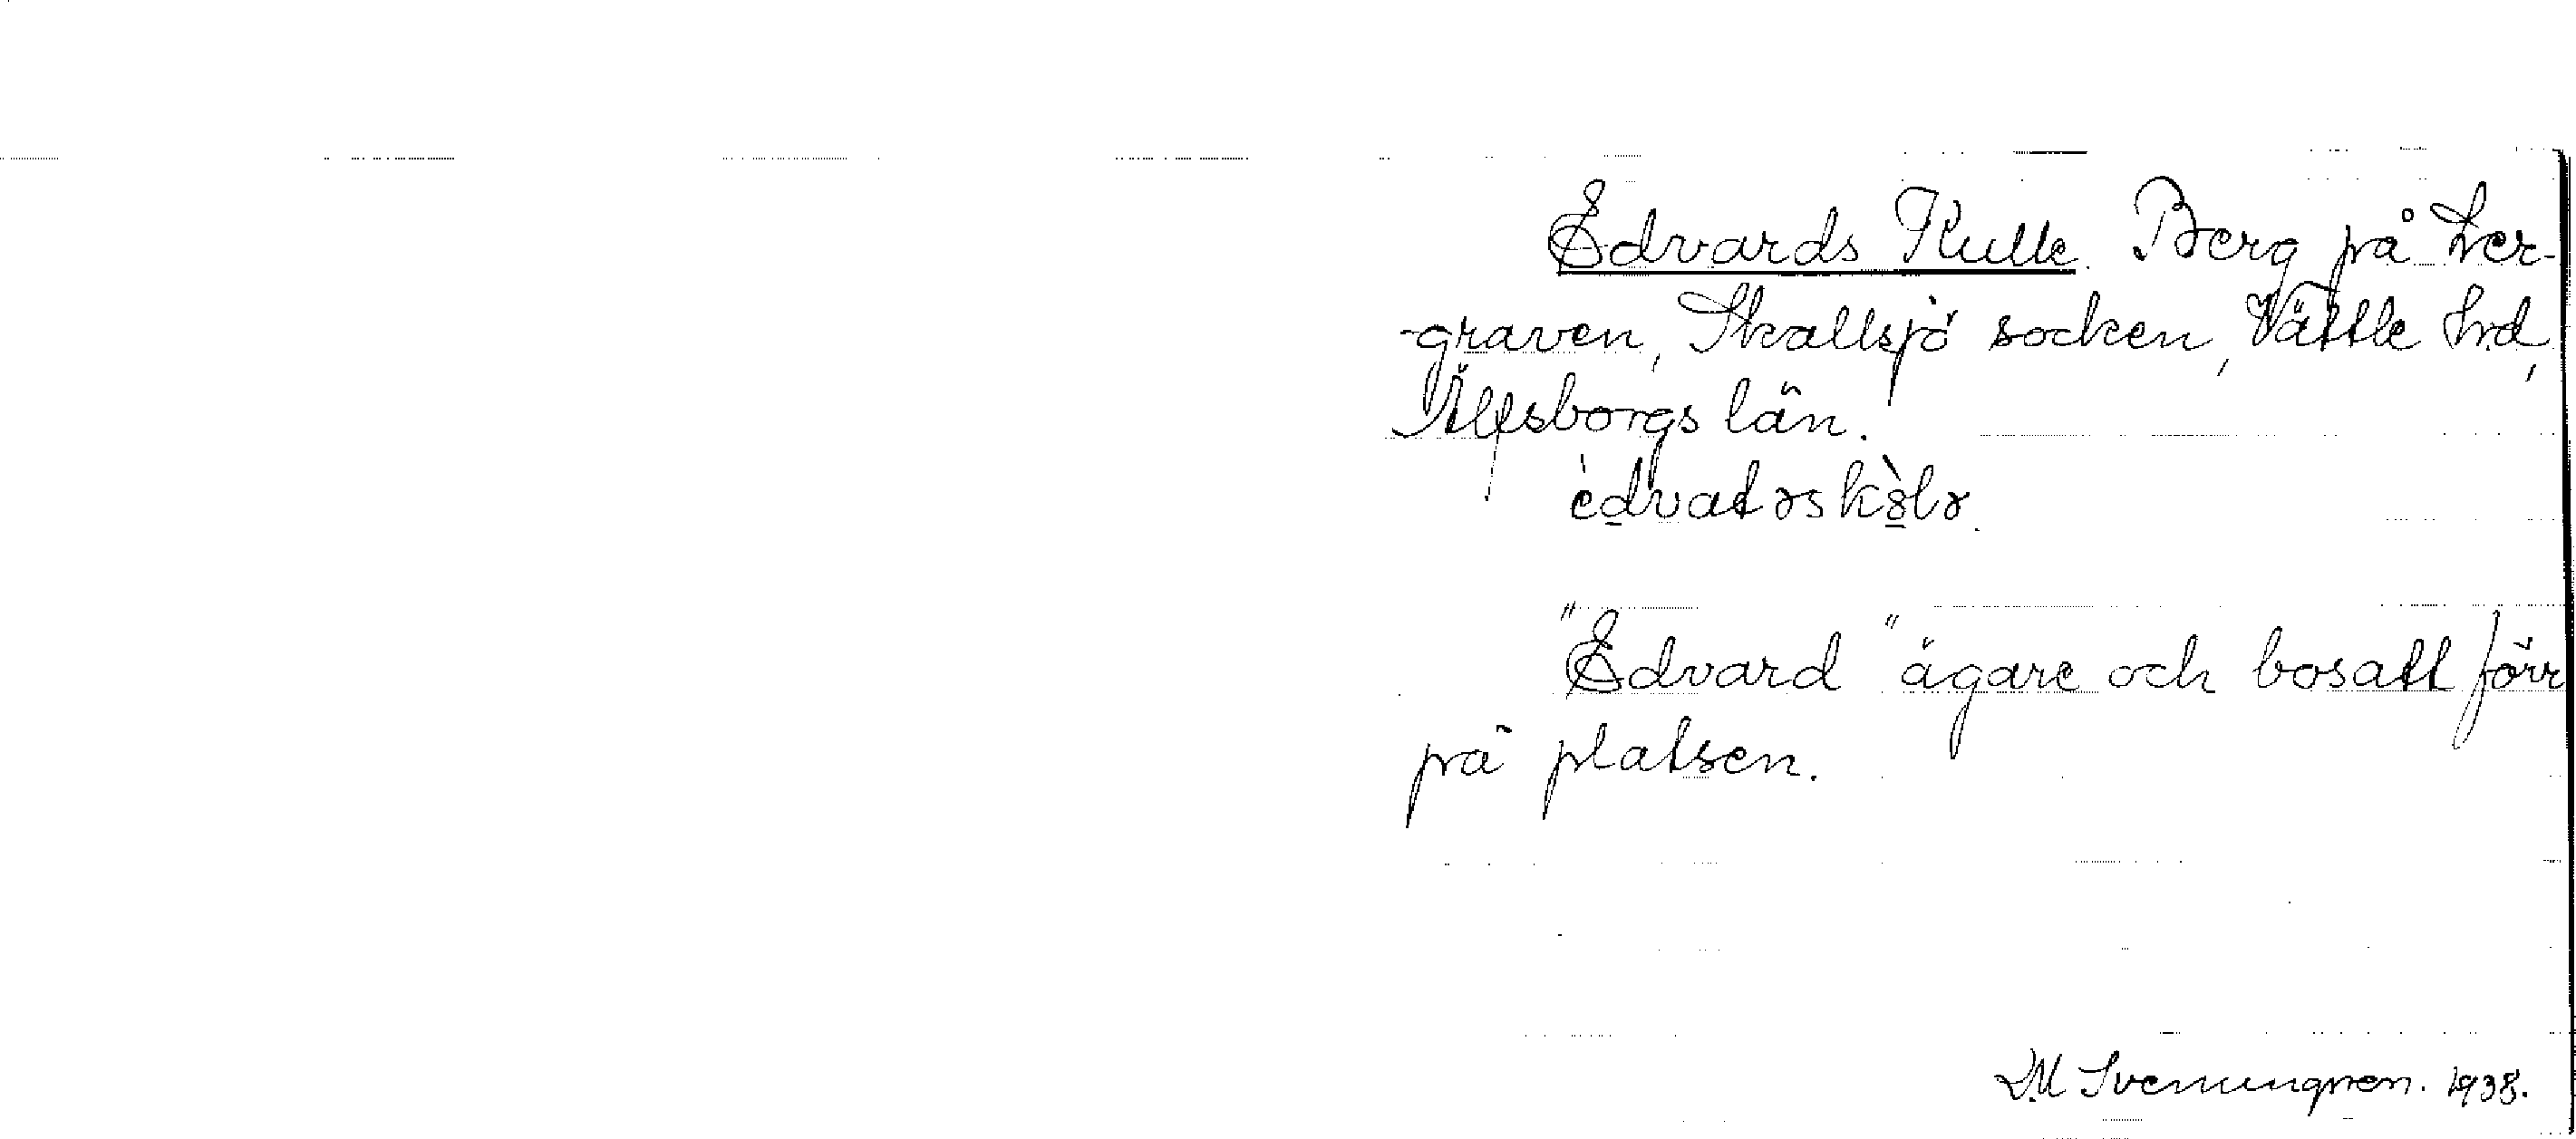 Edvards Kulle. Berg på Ler-
-graven, Skallsjö socken, Vättle hd,
Älfsborgs län.
"Edvard" ägare och bosatt förr
på platsen.
1938.